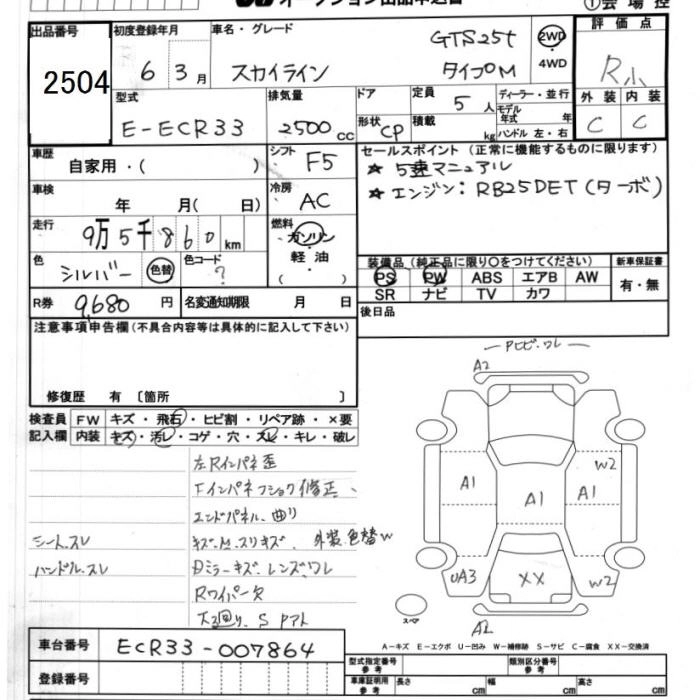 オークション出品申込書
① 会場控
出品番号 2504
初度登録年月 6 3月
車名・グレード スカイライン GTS25t タイプM
2WD ・ 4WD
評価点 R小
外装 内装
C C
型式 E-ECR33
排気量 2500 cc
ドア 形状 CP
定員 5人
積載 kg
ディーラー・並行
モデル年式 年
ハンドル 左・右
車歴 自家用・( )
シフト F5
車検 年 月( 日)
冷房 AC
走行 9万5千860 km
燃料 ガソリン・軽油・( )
色 シルバー 色替
色コード ?
R券 9,680円
名変通知期限 月 日
セールスポイント(正常に機能するものに限ります)
★ 5速マニュアル
★ エンジン:RB25DET(ターボ)
装備品(純正品に限り○をつけてください)
新車保証書
PS PW ABS エアB AW
有・無
SR ナビ TV カワ
後日品
注意事項申告欄(不具合内容等は具体的に記入して下さい)
修復歴 有 〔箇所 〕
検査員 FW キズ・飛石・ヒビ割・リペア跡・×要
記入欄 内装 キズ・汚レ・コゲ・穴・スレ・キレ・破レ
左Rインパネ歪
Fインパネ 修正
エンドパネル 曲り
シート スレ
キズ スリキズ 外装色替W
ハンドル スレ
Dミラーキズ レンズワレ
Rワイパー欠
下廻り S
ヒビ・ワレ
A2
W2
A1 A1 A1
UA3 XX W2
スペア
A2
A-キズ E-エクボ U-凹み W-補修跡 S-サビ C-腐食 XX-交換済
車台番号 ECR33-007864
登録番号
型式指定番号 参考
類別区分番号 参考
車庫証明用 参考 長さ cm 幅 cm 高さ cm